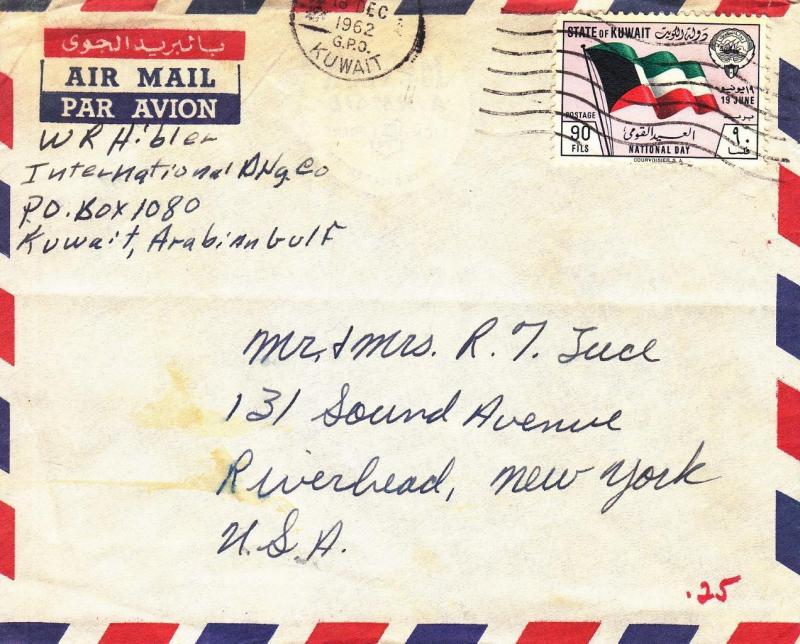 بالبريد الجوى
AIR MAIL
PAR AVION
DEC
1962
G.P.O.
KUWAIT
STATE OF KUWAIT دولة الكويت
١٩ يونيو
19 JUNE
POSTAGE بريد
90 العيد القومي ٩٠
FILS NATIONAL DAY فلسا
COURVOISIER S.A.
W R Hibler
International Drlg. Co
P.O. Box 1080
Kuwait, Arabian Gulf
Mr. & Mrs. R. T. Tuce
131 Sound Avenue
Riverhead, New York
U.S.A.
.25